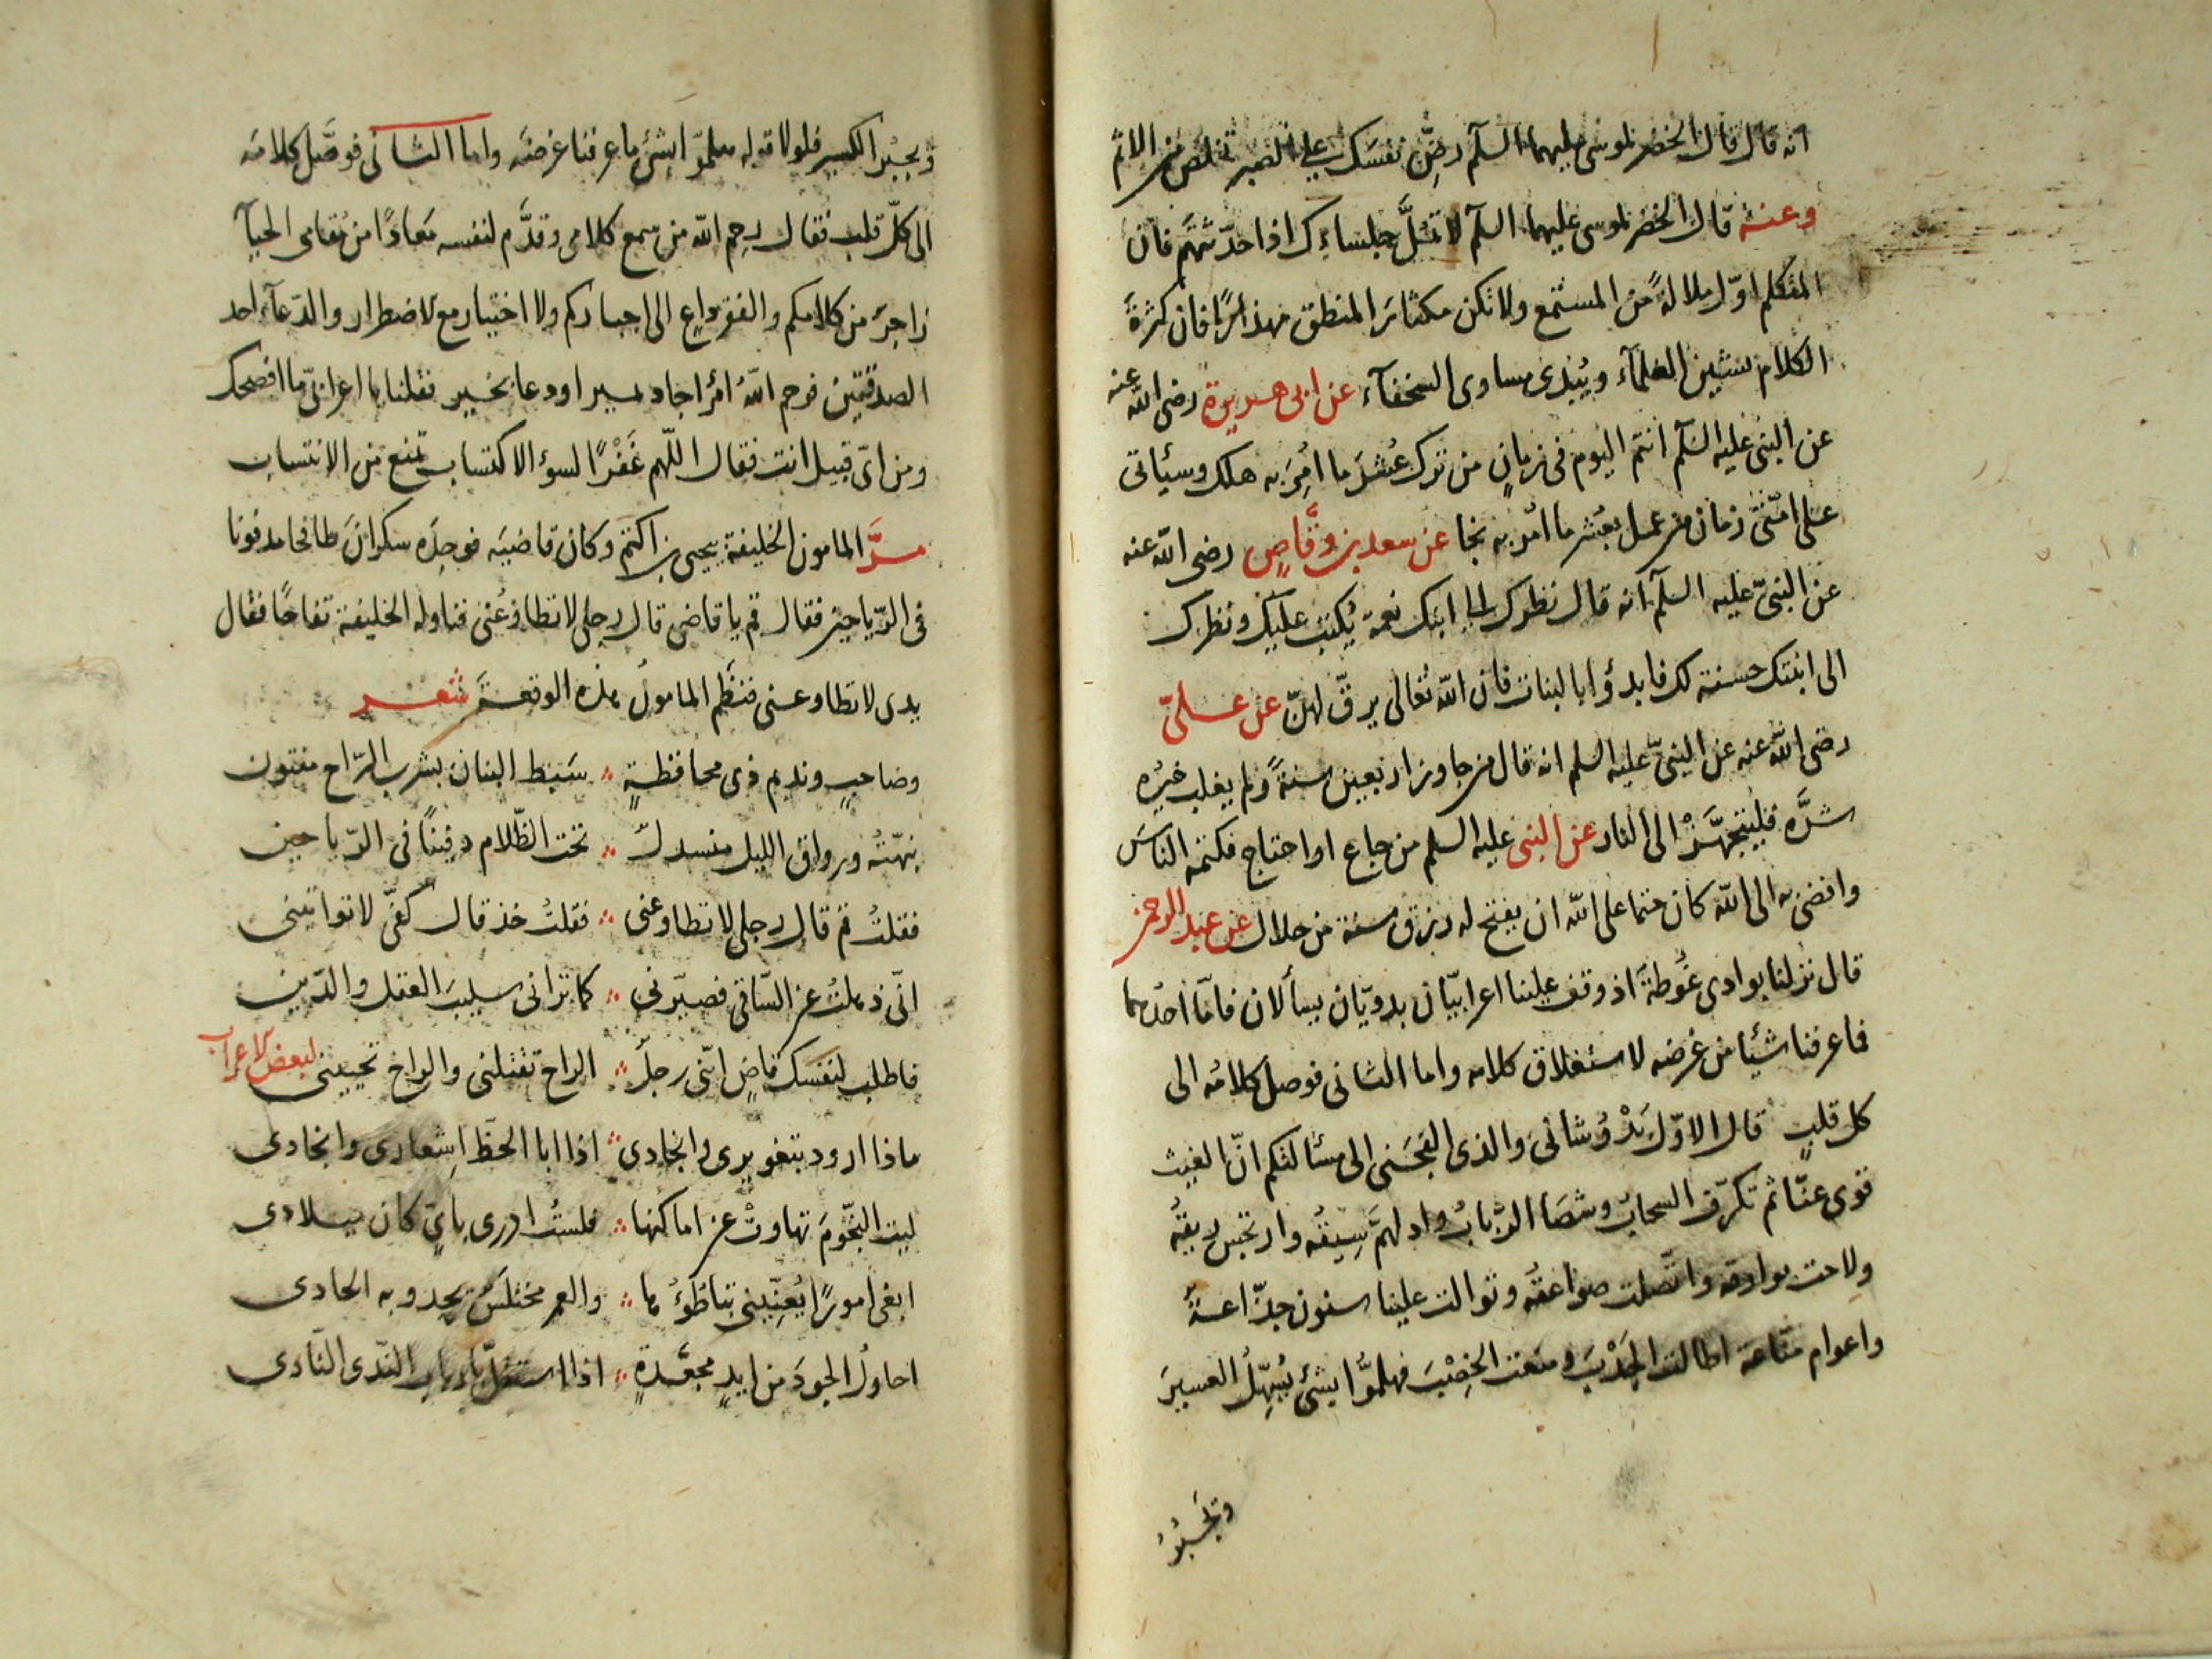 انه قال قال الخضر لموسى عليهما السلم رضّ نفسك على الصبر تخلص من الاثم
وعنه قال الخضر لموسى عليهما السلم لا تملّ جلساءك اذا حدثتهم فان
المتكلم اوّل ملالةً من المستمع ولا تكن مكثار المنطق مهذارًا فان كثرة
الكلام تشين العلمآء ويُبدى مساوى السخفآء عن ابى هريرة رضى الله عنه
عن النبى عليه السلم انتم اليوم فى زمانٍ من ترك عُشرَ ما اُمِرَ به هلك وسيأتى
على امّتى زمان من عمل بعُشر ما اُمر به نجا عن سعد بن وقّاصٍ رضى الله عنه
عن النبىّ عليه السلم انه قال نظرك الى ابنك نعمة يُكتب عليك ونظرك
الى ابنتك حسنة لك فابدؤا بالبنات فان الله تعالى يرقّ لهنّ عن علىّ
رضى الله عنه عن النبىّ عليه السلم انه قال من جاوز اربعين سنةً ولم يغلب خيرُه
شرَّه فليتجهّزْ الى النار عن النبى عليه السلم من جاع او احتاج فكتمه الناسَ
وافضى به الى الله كان حتما على الله ان يفتح له رزق سنة من حلال عن عبد الرحمن
قال نزلنا بوادى غوطة اذ وقف علينا اعرابيّان بدويّان يسألان فامّا احدهما
فما عرفنا شيئا من غرضه لاستغلاق كلامه واما الثانى فوصل كلامُه الى
كل قلبٍ قال الاوّل بَدْوُ شانى والذى الجَجَنى الى مسألتكم انّ الغيث
قوى عنّا ثم تكرّف السحابُ وشصَا الرَّبابُ وادلهمَّ سِيقُه وارتجس ريقُه
ولاحت بوارقه واتّصلت صواعقُه وتوالت علينا سنون جدّاعةٌ
واعوام منّاعة اطالت الجَدْبَ ومنعت الخِصْبَ فهلمّوا بشئ يُسَهِّلُ العسيرَ
وتجبُرُ
ويجبُر الكسير فلولا قوله هلمّوا بشئ ما عرفنا غرضَه واما الثانى فوصَل كلامه
الى كلّ قلب فقال رحم الله من سمع كلامى وقدَّم لنفسه مَعاذًا من مُقامى الحيآ
زاجرٌ من كلامكم والفقر داعٍ الى اخباركم ولا اختيار مع الاضطرار والدّعآء احد
الصدقتين فرحم اللهُ امرًا جاد بمير او دعا بخير فقلنا يا اعرابىّ ما افصحك
ومن اىّ قبيل انت فقال اللهم غَفْرًا لسوء الاكتساب تمنع من الانتساب
مرَّ المامون الخليفة بيحيى بن اكثم وكان قاضيَه فوجدَه سكران طافحا مدفونا
فى الرّياحين فقال قم يا قاضى قال رجلى لا تطاوعنى فناوله الخليفة تفاحًا فقال
يدى لا تطاوعنى فنظَم المامونُ هذه الوقعةَ شعر
وصاحبٍ ونديم ذى محافظةٍ ؞ سَبط البنان بشرب الرّاح مفتون
نبّهتُه ورواق الليل منسدلٌ ؞ تحت الظّلام دفينًا فى الرّياحين
فقلتُ قم قال رجلى لا تطاوعنى ؞ فقلتُ خذ قال كفّى لا تواتينى
انّى ذهلتُ عن السّاقى فصيّرنى ؞ كما ترانى سليبَ العقل والدّين
فاطلب لنفسك قاضٍ انّنى رجلٌ ؞ الراح تقتلنى والراح تحيينى لبعض الاعراب
ماذا ارود بتغويرى وانجادى ؞ اذا ابا الحظّ اِسْعادى وانجادى
ليت النّجومَ تهاوتْ عن اماكنها ؞ فلستُ ادرى باىٍّ كان ميلادى
ابغى امورًا يُعنّينى تباطُؤُها ؞ والعمر مختلَسٌ يحدو به الحادى
احاولُ الجودَ من ايدٍ مجعّدةٍ ؞ اذا استهلّ بارباب النّدى النّادى